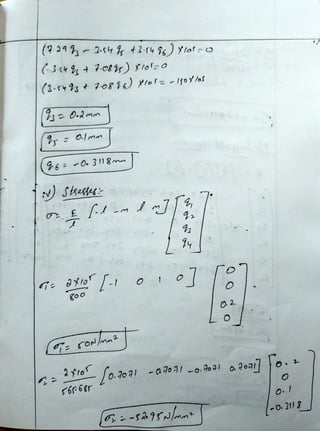 (7.29 q3 - 3.54 q5 + 3.54 q6) x10⁵ = 0
(-3.54 q3 + 7.08 q5) x10⁵ = 0
(3.54 q3 + 7.08 q6) x10⁵ = -150x10³
q3 = 0.2mm
q5 = 0.1mm
q6 = -0.3118mm
iv) Stresses:-
σ = E/l [-l -m l m] [q1 q2 q3 q4]
σ1 = 2x10⁵/800 [-1 0 1 0] [0 0 0.2 0]
σ1 = 50N/mm²
σ2 = 2x10⁵/565.685 [0.7071 -0.7071 -0.7071 0.7071] [0.2 0 0.1 -0.3118]
σ2 = -52.95N/mm²